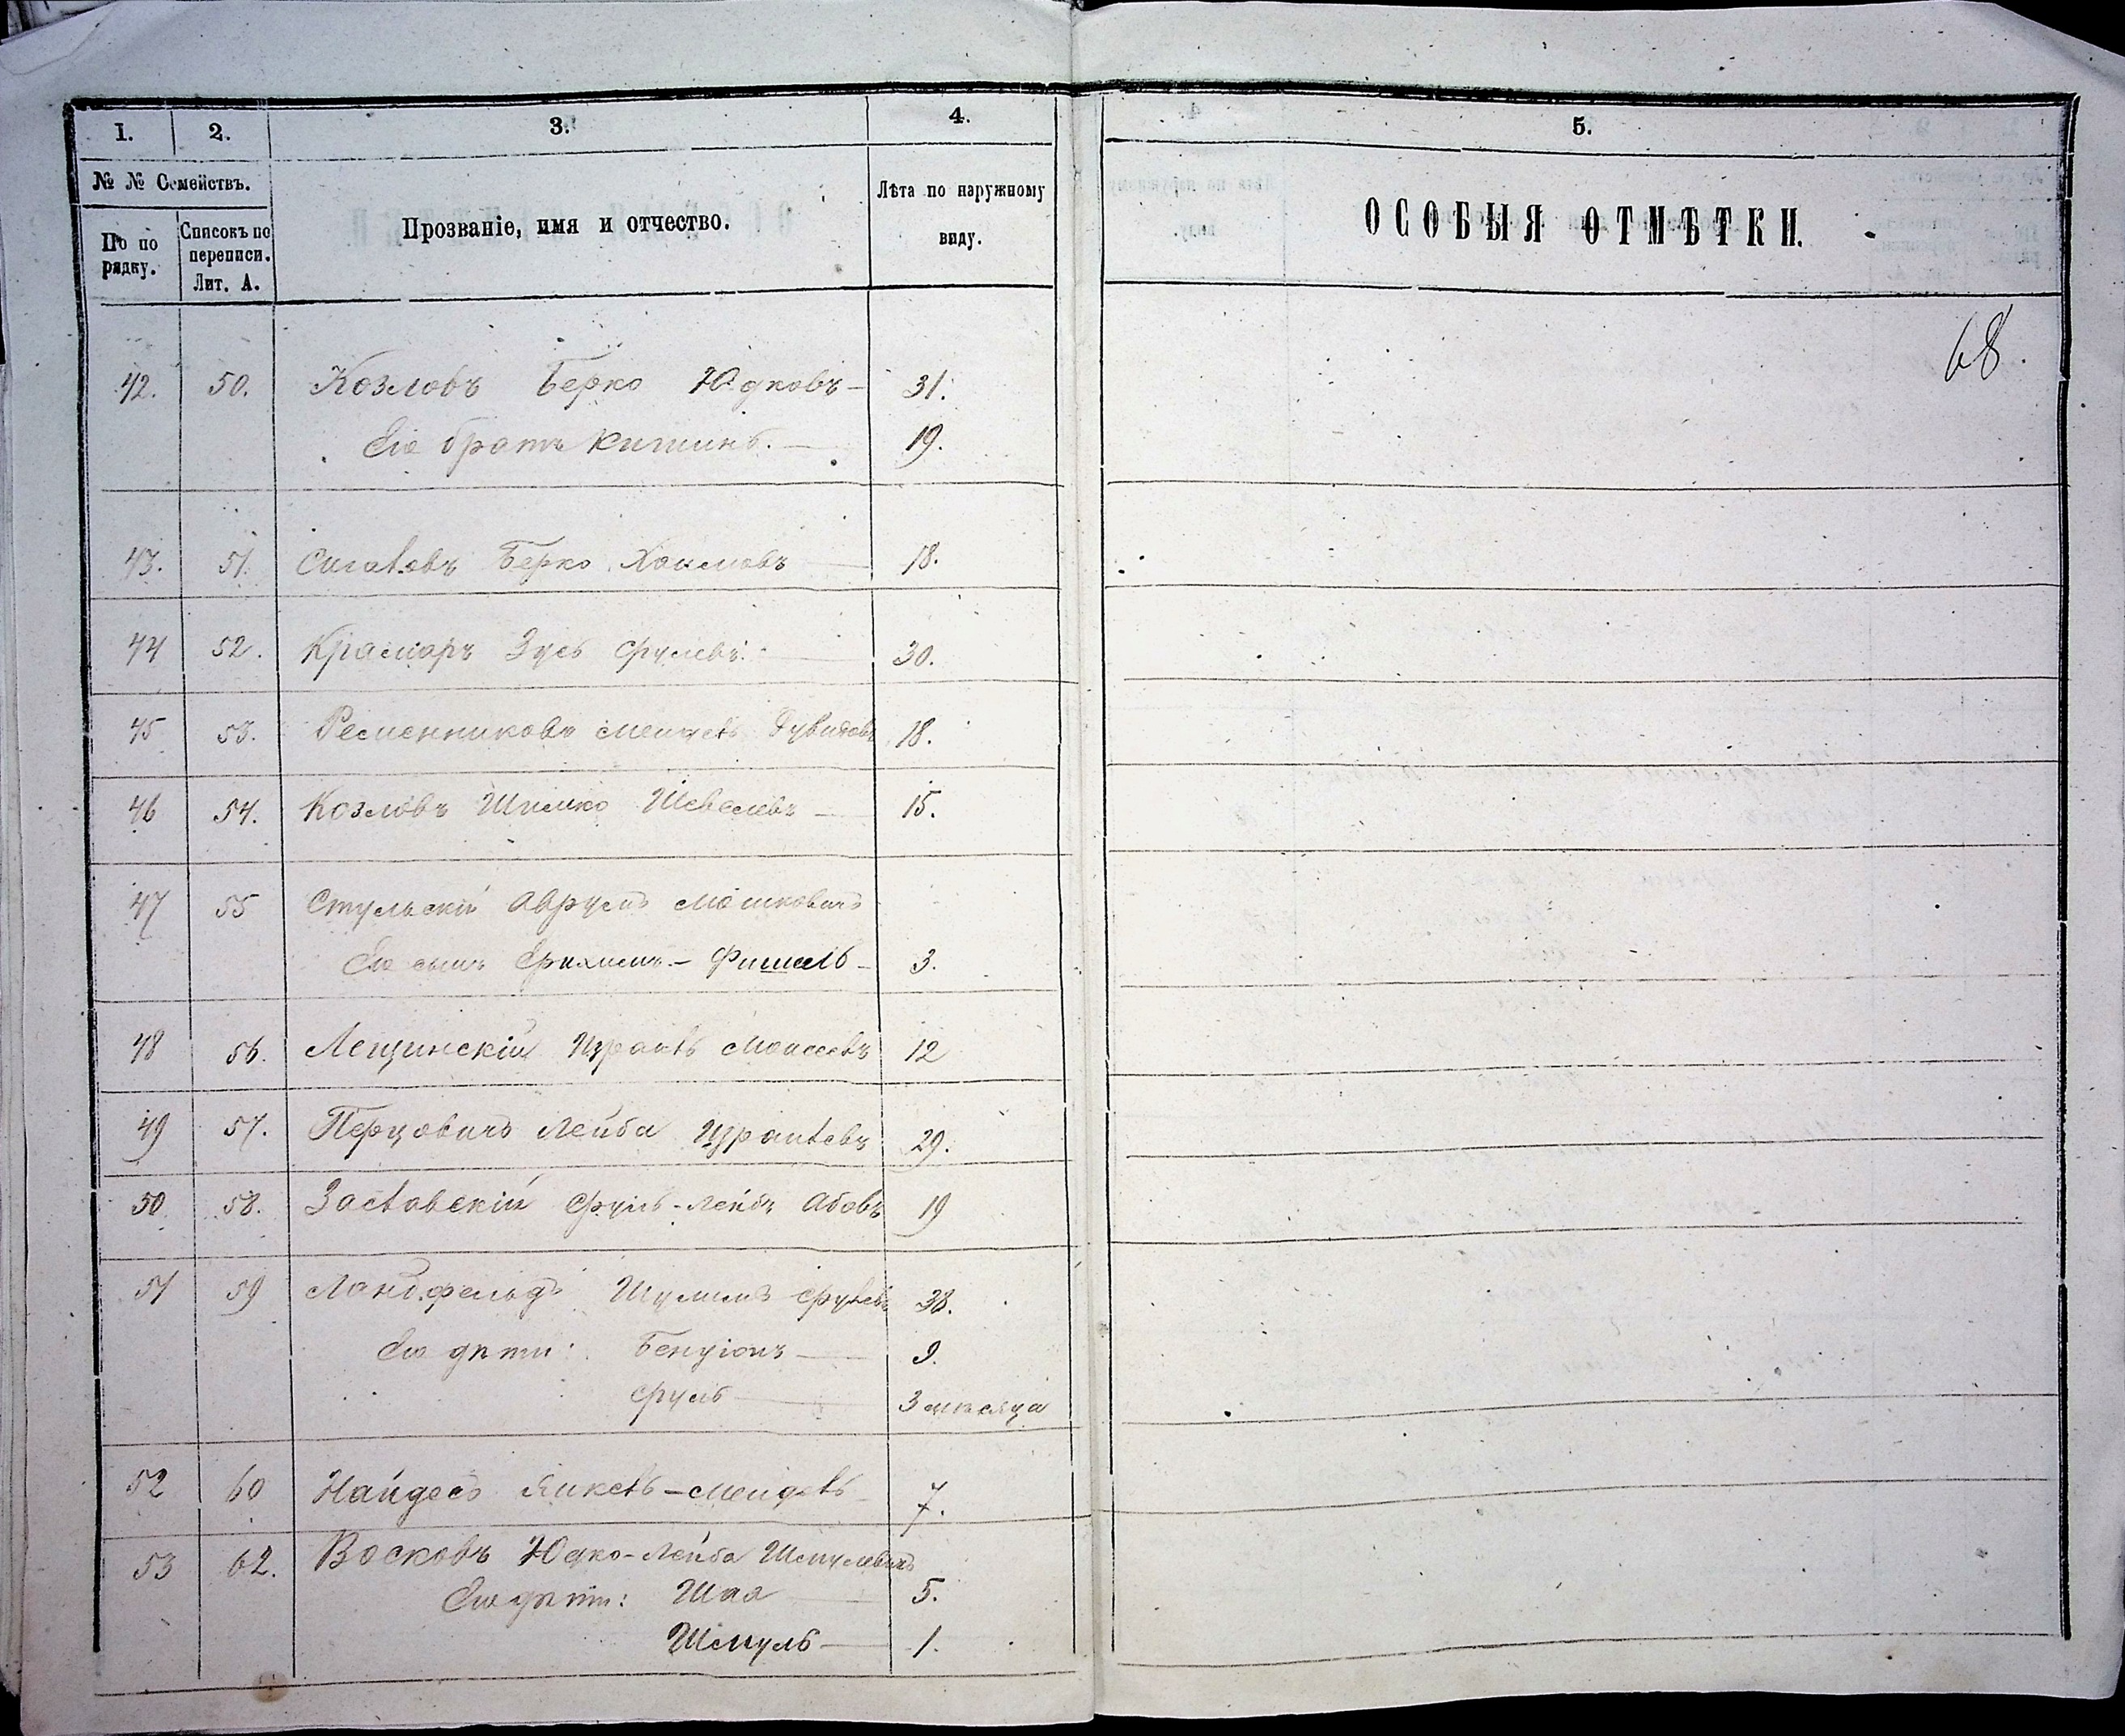 1. 2. 3. 4. 5.
№ № Семействъ. Прозваніе, имя и отчество. Лѣта по наружному виду. ОСОБЫЯ ОТМѢТКИ.
По по рядку. Списокъ по переписи. Лит. А.
68.
42. 50. Козловъ Берко Юдковъ — 31.
Его братъ — 19.
43. 51. Берко Хаимовъ — 18.
44 52. Крамаръ Зусь Срулевъ. — 30.
45 53. Ременниковъ Мендель Дувидовъ 18.
46 54. Козловъ Шимко Шевелевъ — 15.
47 55 Стульскій Аврумъ Мошковичъ
Его сынъ Ефихимъ - Фишель — 3.
48 56. Лещинскій Израиль Моисеевъ 12
49 57. Перцовичъ Лейба Израилевъ 29.
50. 58. Заславскій Сруль-Лейбъ Абовъ 19
51 59 Ландфельдъ Шулимъ Срулевъ 38.
Его дѣти: Бенціонъ — 9.
Сруль — 3 мѣсяца
52 60 Найдесъ Янкель-Мендель 7.
53 62. Восковъ Юдко-Лейба Шмулевичъ
Его дѣти: Шая — 5.
Шмуль — 1.